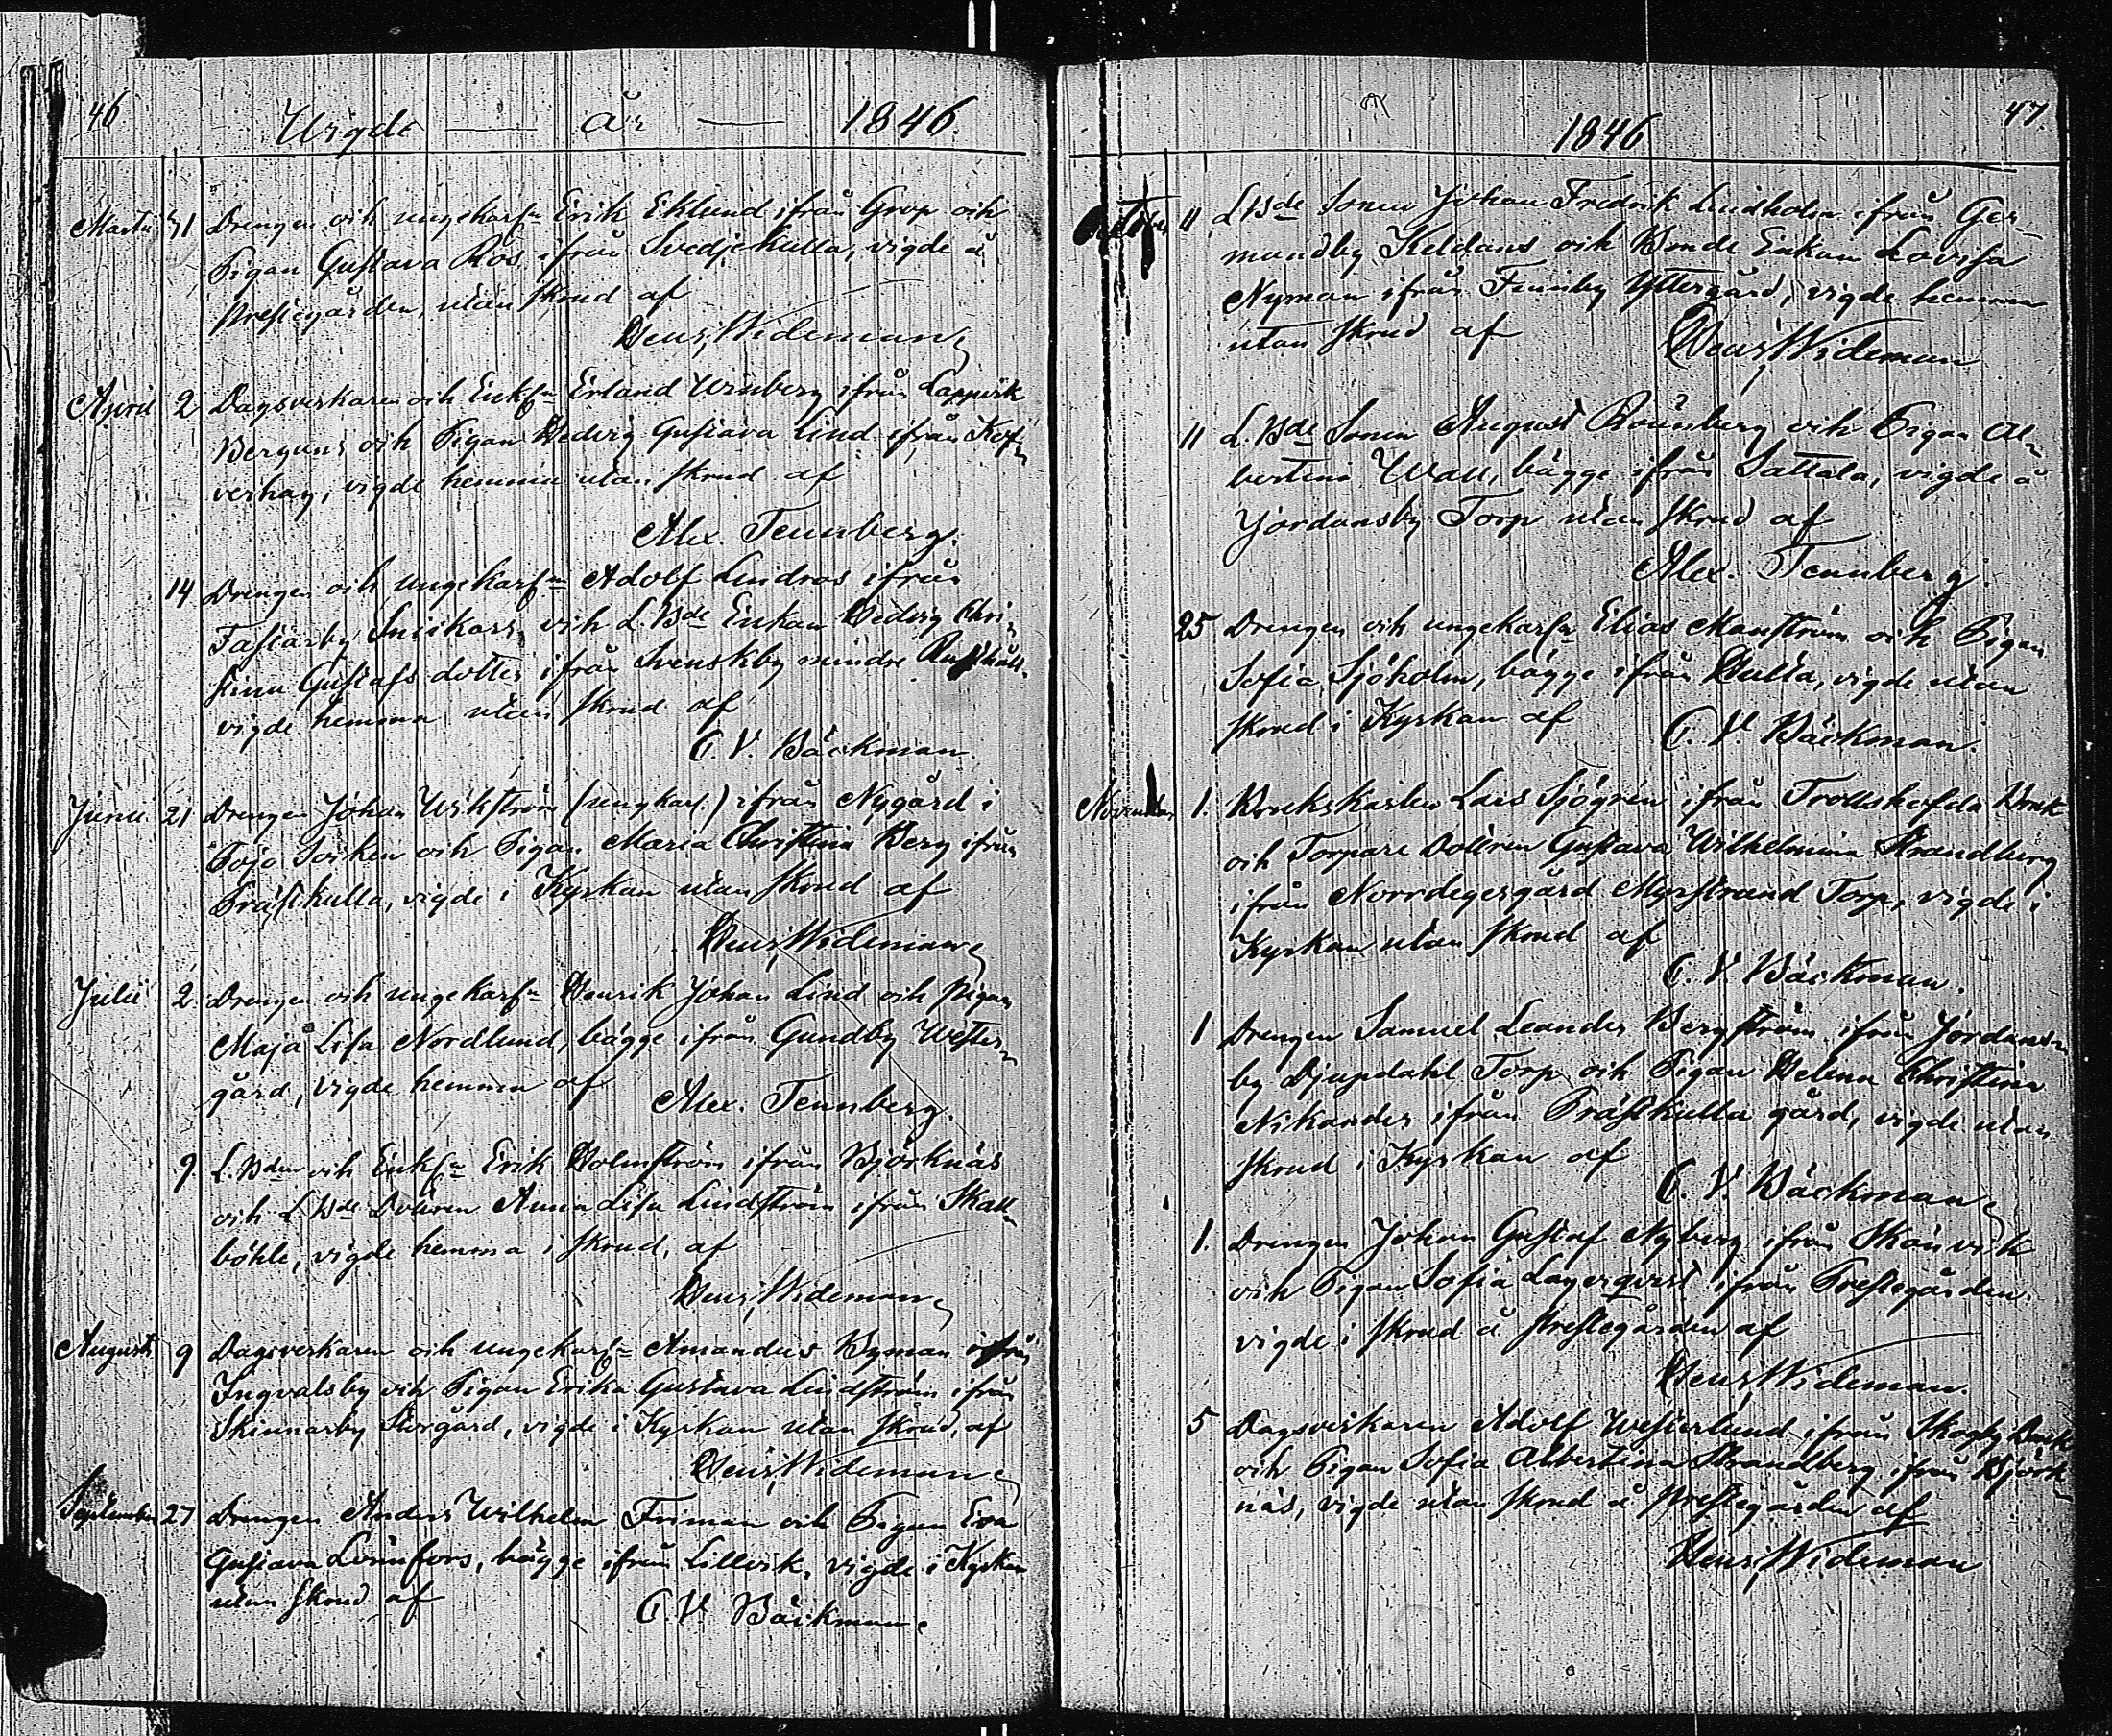 46
Vigde — år — 1846.
Martii 31 Drengen och ungekarln Erik Eklund ifrån Grop och
Pigan Gustava Ros ifrån Svedjekulla, vigde å
Prestegården, utan skrud af
Henr. Wideman
April 2 Dagsverkaren och Enkln Erland Winberg ifrån Lappvik
Bergans och Pigan Hedvig Gustava Lind ifrån Kof-
verhag, vigde hemma utan skrud af
Alex. Tennberg.
14 Drengen och ungekarln Adolf Lindros ifrån
Fastarby Snickars och L.Bde Enkan Hedvig Chri-
stina Gustafs dotter ifrån Svenskby mindre Rusthåll
vigde hemma utan skrud af
C. V. Bäckman.
Junii 21 Drengen Johan Wikström (ungkarl.) ifrån Nygård i
Pojo Socken och Pigan Maria Christina Berg ifrån
Prästkulla, vigde i Kyrkan utan skrud af
Henr. Wideman
Julii 2. Drengen och ungekarln Henrik Johan Lind och pigan
Maja Lisa Nordlund, bägge ifrån Gundby Wester-
gård, vigde hemma af
Alex. Tennberg.
9. L.Bden och Enkln Erik Holmström ifrån Björknäs
och L.Bde Dottren Anna Lisa Lindström ifrån Skall-
böhle, vigde hemma i skrud, af
Henr. Wideman
Augusti 9 Dagsverkaren och ungekarln Amandus Byman ifrån
Ingvalsby och Pigan Erika Gustava Lindström ifrån
Skinnarby Storgård, vigde i Kyrkan utan skrud, af
Henr. Wideman
September 27 Drengen Anders Wilhelm Friman och Pigan Eva
Gustava Lönnfors, bägge ifrån Lillvik, vigde i Kyrkan
utan skrud af
C. V. Bäckman.
47.
1846
October 11 L.Bde Sonen Johan Fredrik Lindholm ifrån Ger-
mundby Keldans och Bonde Enkan Lovisa
Nyman ifrån Finnby Yttergård, vigde hemma
utan skrud af
Henr. Wideman
11 L.Bde Sonen August Rönnberg och Pigan Al-
bertina Wall, bägge ifrån Sattala, vigde å
Jordansby Torp utan skrud af
Alex. Tennberg.
25 Drengen och ungekarln Elias Manström och Pigan
Sofia Sjöholm, bägge ifrån Hulta, vigde utan
skrud i Kyrkan af
C. V. Bäckman.
November 1. Brukskarlen Lars Sjögren ifrån Trollshofda Bruk
och Torpare Dottren Gustava Wilhelmina Strandberg
ifrån Norrdegergård Myrstrand Torp, vigde i
Kyrkan utan skrud af
C. V. Bäckman.
1 Drengen Samuel Leander Bergström ifrån Jordans-
by Djupdahl Torp och Pigan Helena Christina
Nikander ifrån Prästkulla gård, vigde utan
skrud i Kyrkan af
C. V. Bäckman
1. Drengen Johan Gustaf Nyberg ifrån Skånvik
och Pigan Sofia Lagerqvist ifrån Prestegården
vigde i skrud å Prestegården af
Henr. Wideman.
5 Dagsverkaren Adolf Westerlund ifrån Skogby Bruk
och Pigan Sofia Albertina Strandberg ifrån Björk-
näs, vigde utan skrud å prestegården af
Henr. Wideman